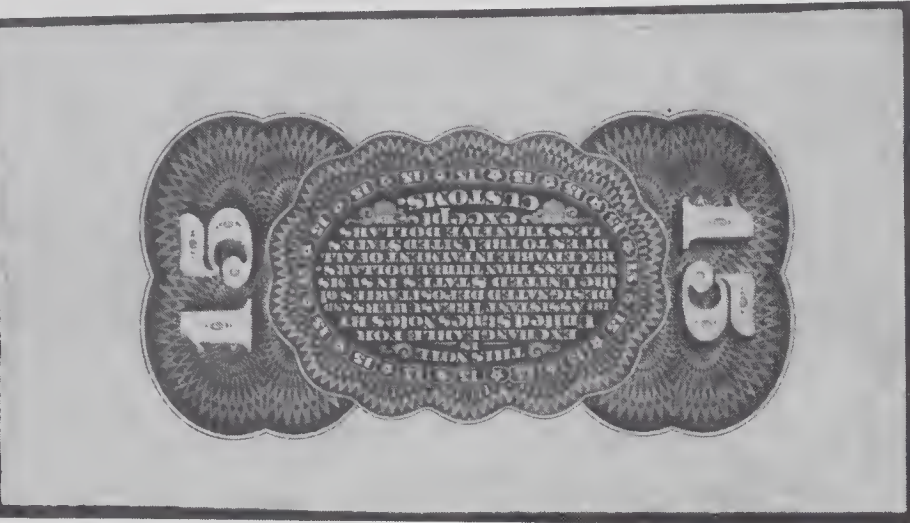 THIS NOTE
IS
EXCHANGEABLE FOR
United States Notes BY
THE ASSISTANT TREASURERS AND
DESIGNATED DEPOSITARIES OF
the UNITED STATES IN SUMS
NOT LESS THAN THREE DOLLARS
RECEIVABLE IN PAYMENT OF ALL
DUES TO THE UNITED STATES
LESS THAN FIVE DOLLARS
except
CUSTOMS.
15
15